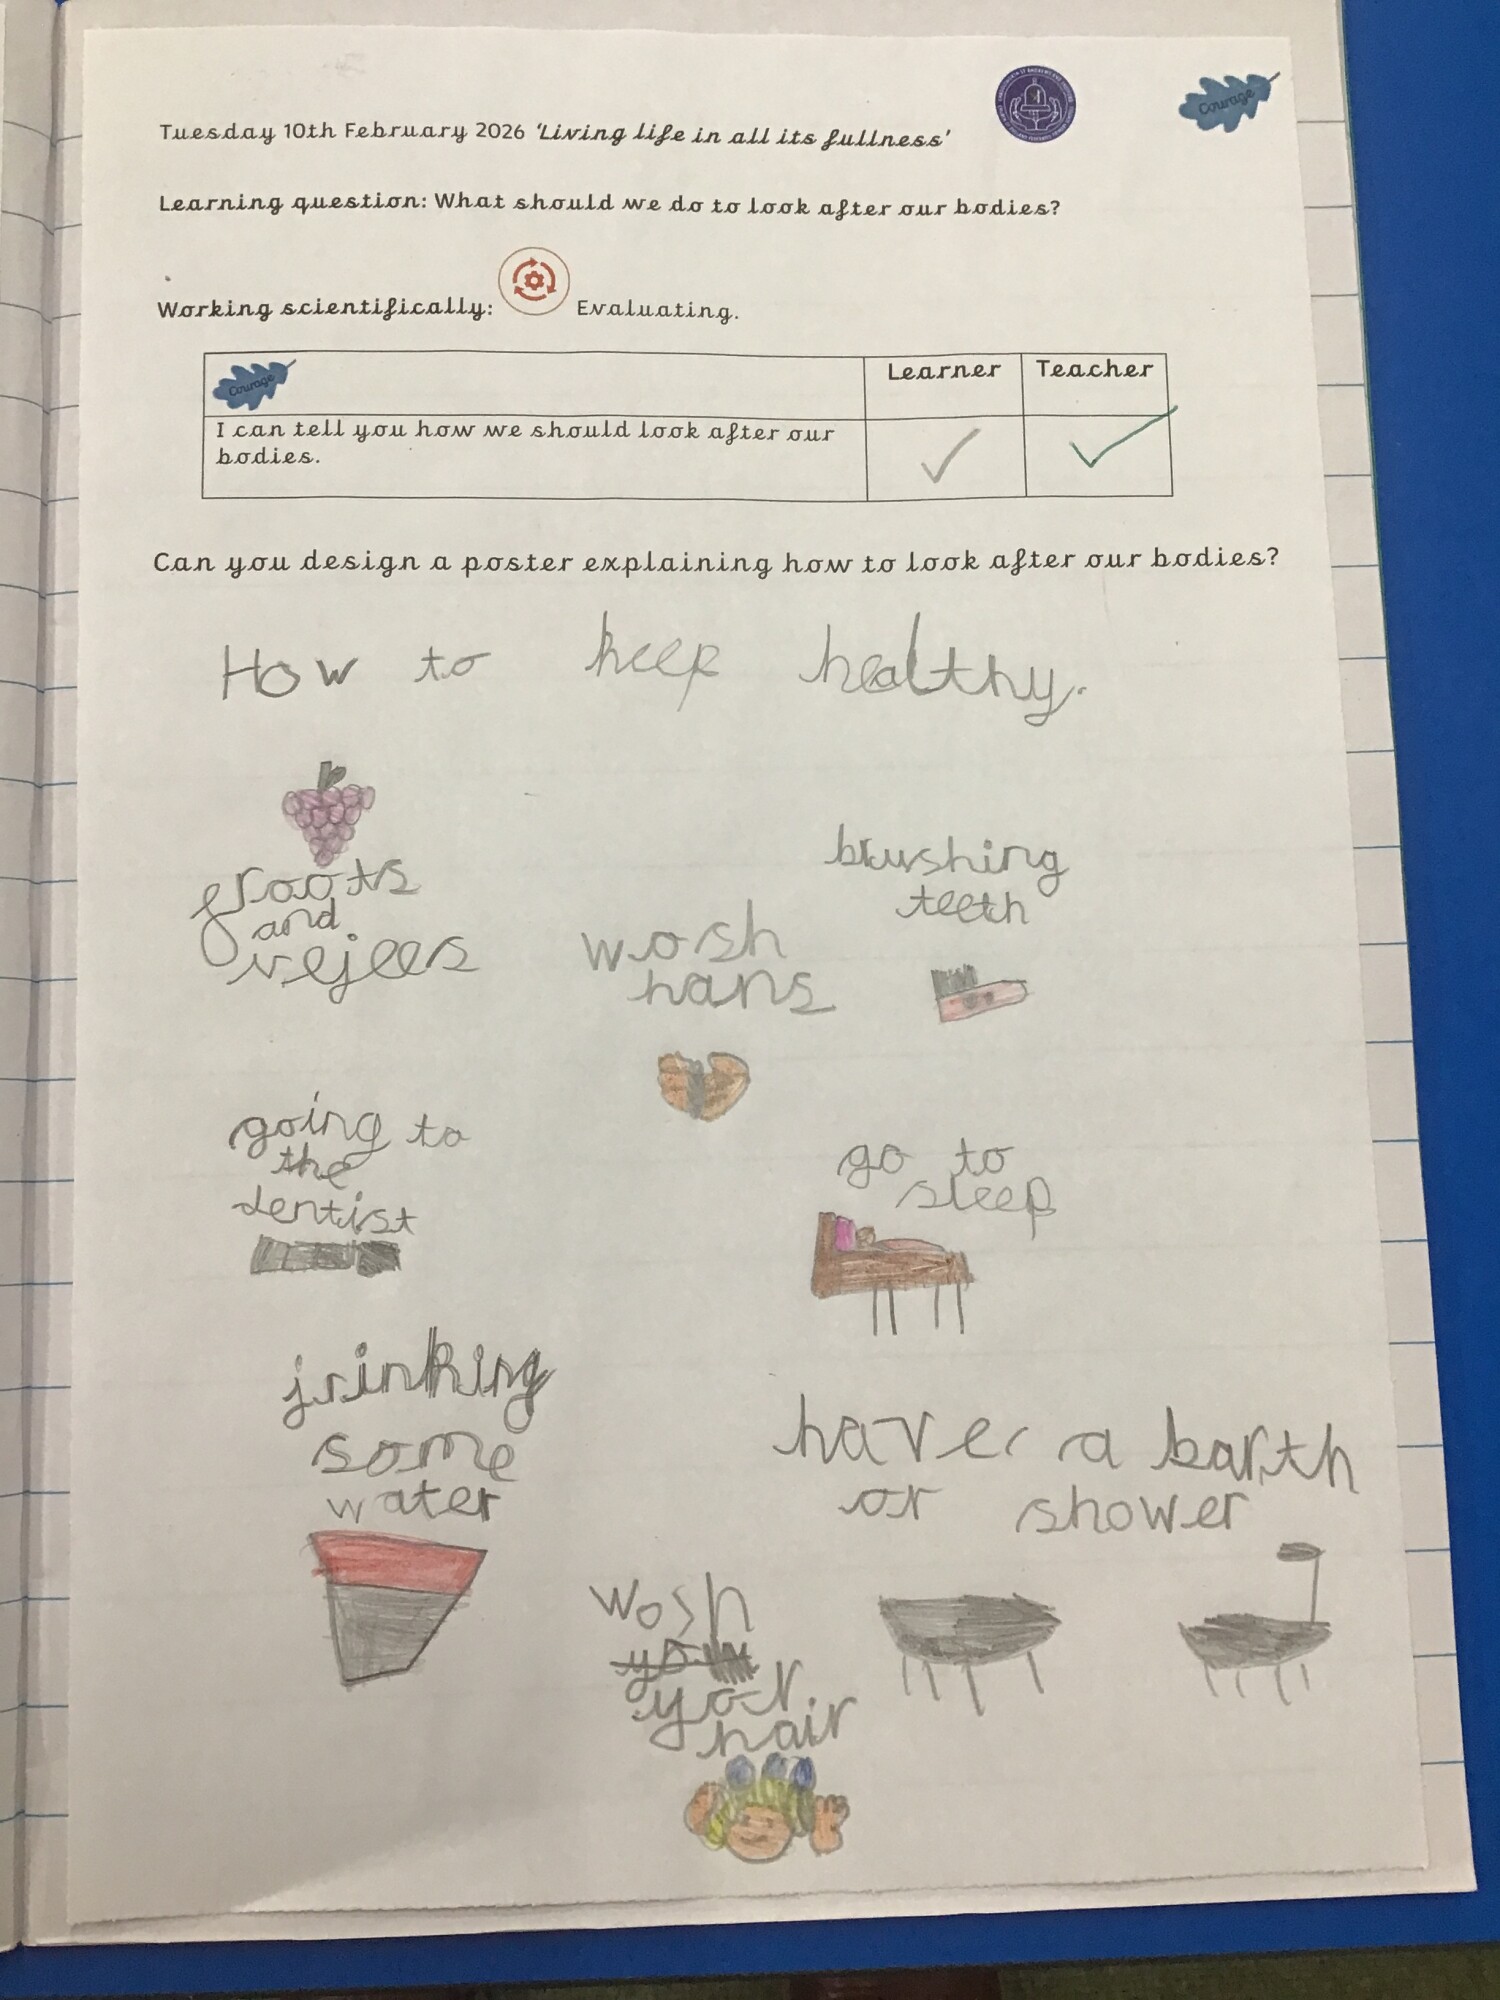 Tuesday 10th February 2026 'Living life in all its fullness'
Courage
Learning question: What should we do to look after our bodies?
Working scientifically: Evaluating.
Courage
Learner
Teacher
I can tell you how we should look after our
bodies.
Can you design a poster explaining how to look after our bodies?
How to keep healthy.
froots
and
vejees
wosh
hans
brushing
teeth
going to
the
dentist
go to
sleep
jrinking
some
water
have a barth
or shower
wosh
your
hair